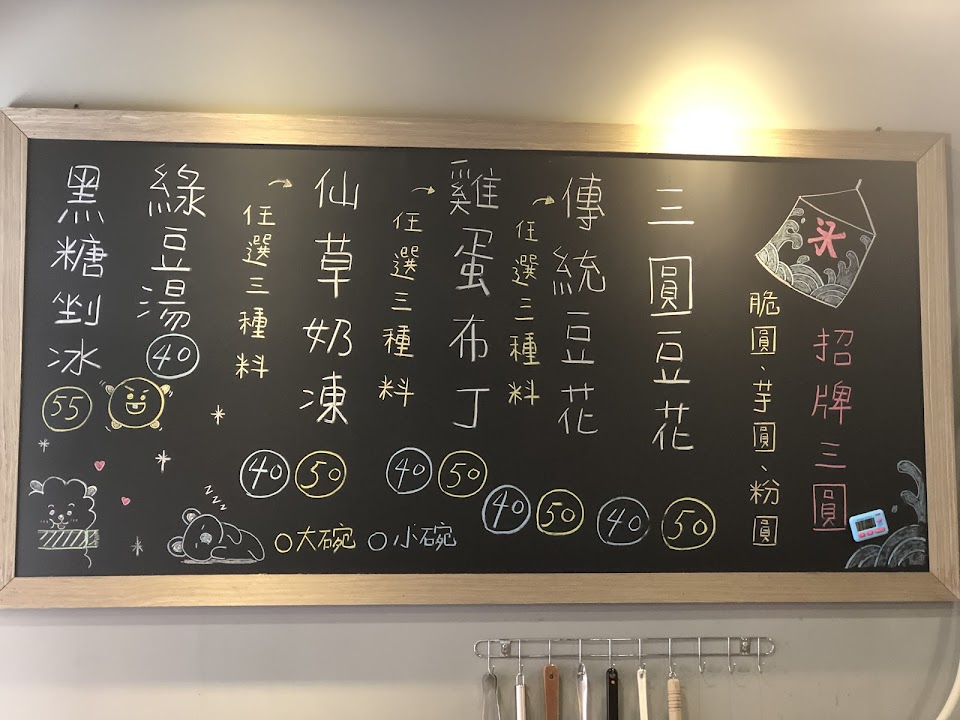 头
招牌三圓
脆圓、芋圓、粉圓
三圓豆花
40 50
傳統豆花
任選三種料
40 50
雞蛋布丁
任選三種料
40 50
仙草奶凍
任選三種料
40 50
綠豆湯
40
黑糖剉冰
55
大碗 小碗
z z z